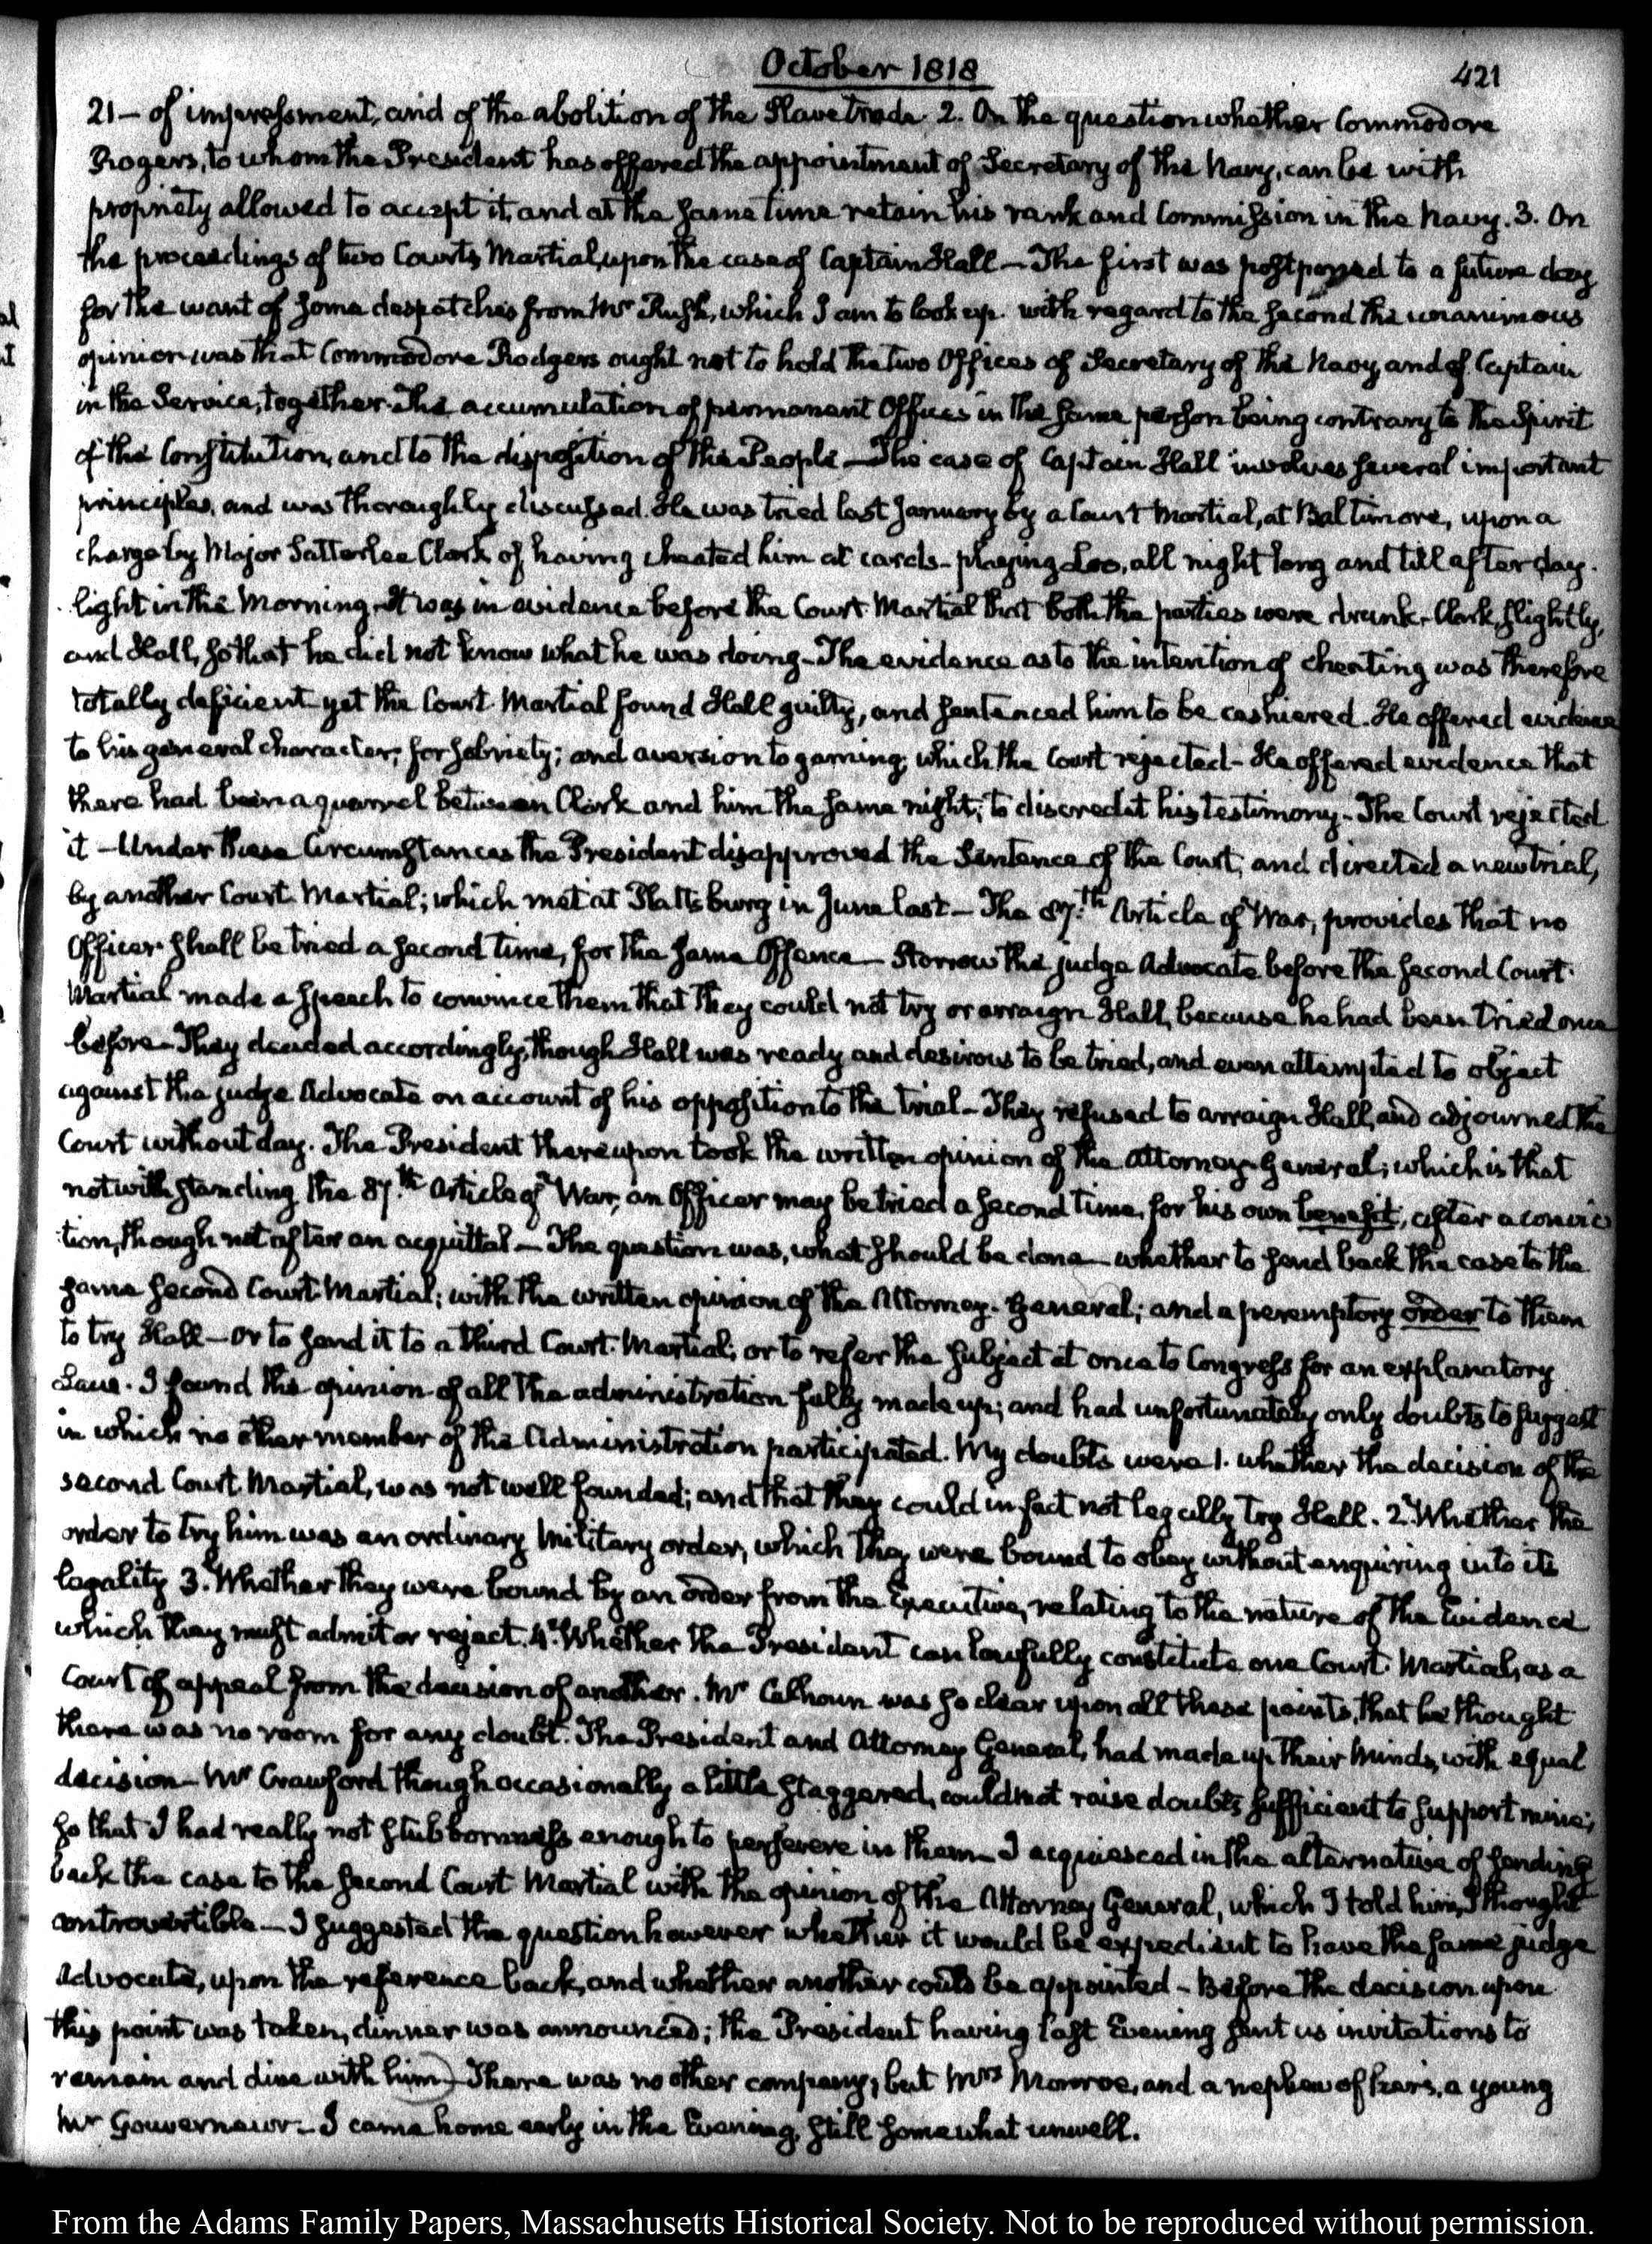 October 1818
421
21– of impressment, and of the abolition of the Slave trade. 2. On the question whether Commodore
Rogers, to whom the President has offered the appointment of Secretary of the Navy, can be with
propriety allowed to accept it, and at the same time retain his rank and Commission in the Navy. 3. On
the proceedings of two Courts Martial, upon the case of Captain Hall – The first was postponed to a future day
for the want of some despatches from Mr Rush, which I am to look up. with regard to the second the unanimous
opinion was that Commodore Rodgers ought not to hold the two Offices of Secretary of the Navy and of Captain
in the Service, together. The accumulation of permanent Offices in the same person being contrary to the Spirit
of the Constitution, and to the disposition of the People – The case of Captain Hall involves several important
principles, and was thoroughly discussed. He was tried last January by a Court Martial, at Baltimore, upon a
charge by Major Satterlee Clark, of having cheated him at cards – playing Loo, all night long and till after day-
light in the Morning – It was in evidence before the Court Martial that both the parties were drunk – Clark, slightly,
and Hall, so that he did not know what he was doing – The evidence as to the intention of cheating was therefore
totally deficient yet the Court Martial found Hall guilty, and sentenced him to be cashiered. He offered evidence
to his general character; for sobriety; and aversion to gaming; which the Court rejected – He offered evidence that
there had been a quarrel between Clark and him the same night; to discredit his testimony – The Court rejected
it – Under these Circumstances the President disapproved the Sentence of the Court, and directed a new trial,
by another Court Martial; which met at Plattsburg in June last – The 87.th Article of War, provides that no
Officer shall be tried a second time, for the same Offence – Storrow the judge Advocate before the second Court-
Martial made a speech to convince them that they could not try or arraign Hall, because he had been tried once
before – They decided accordingly, though Hall was ready and desirous to be tried, and even attempted to object
against the judge Advocate on account of his opposition to the trial – They refused to arraign Hall, and adjourned the
Court without day. The President thereupon took the written opinion of the Attorney-General; which is that
notwithstanding the 87.th Article of War, an Officer may be tried a second time, for his own benefit, after a convic-
tion, though not after an acquittal – The question was, what should be done – whether to send back the case to the
same second Court-Martial; with the written opinion of the Attorney-General; and a peremptory order to them
to try Hall – or to send it to a third Court-Martial; or to refer the subject at once to Congress for an explanatory
Law. I found the opinion of all the administration fully made up; and had unfortunately only doubts to suggest
in which no other member of the Administration participated. My doubts were 1. whether the decision of the
second Court Martial, was not well founded; and that they could in fact not legally try Hall. 2. Whether the
order to try him was an ordinary Military order, which they were bound to obey without enquiring into its
legality 3. Whether they were bound by an order from the Executive, relating to the nature of the Evidence
which they must admit or reject. 4. Whether the President can lawfully constitute one Court-Martial, as a
Court of appeal from the decision of another. Mr Calhoun was so clear upon all these points, that he thought
there was no room for any doubt. The President and Attorney General, had made up their Minds, with equal
decision – Mr Crawford though occasionally a little staggered, could not raise doubts sufficient to support mine;
so that I had really not stubbornness enough to persevere in them – I acquiesced in the alternative of sending
back the case to the second Court Martial with the opinion of the Attorney General, which I told him, I thought
controvertible – I suggested the question however whether it would be expedient to have the same judge
Advocate, upon the reference back, and whether another could be appointed – Before the decision upon
this point was taken, dinner was announced; the President having last Evening sent us invitations to
remain and dine with him – There was no other company, but Mrs Monroe, and a nephew of hers, a young
Mr Gouverneur – I came home early in the Evening, still somewhat unwell.
From the Adams Family Papers, Massachusetts Historical Society. Not to be reproduced without permission.